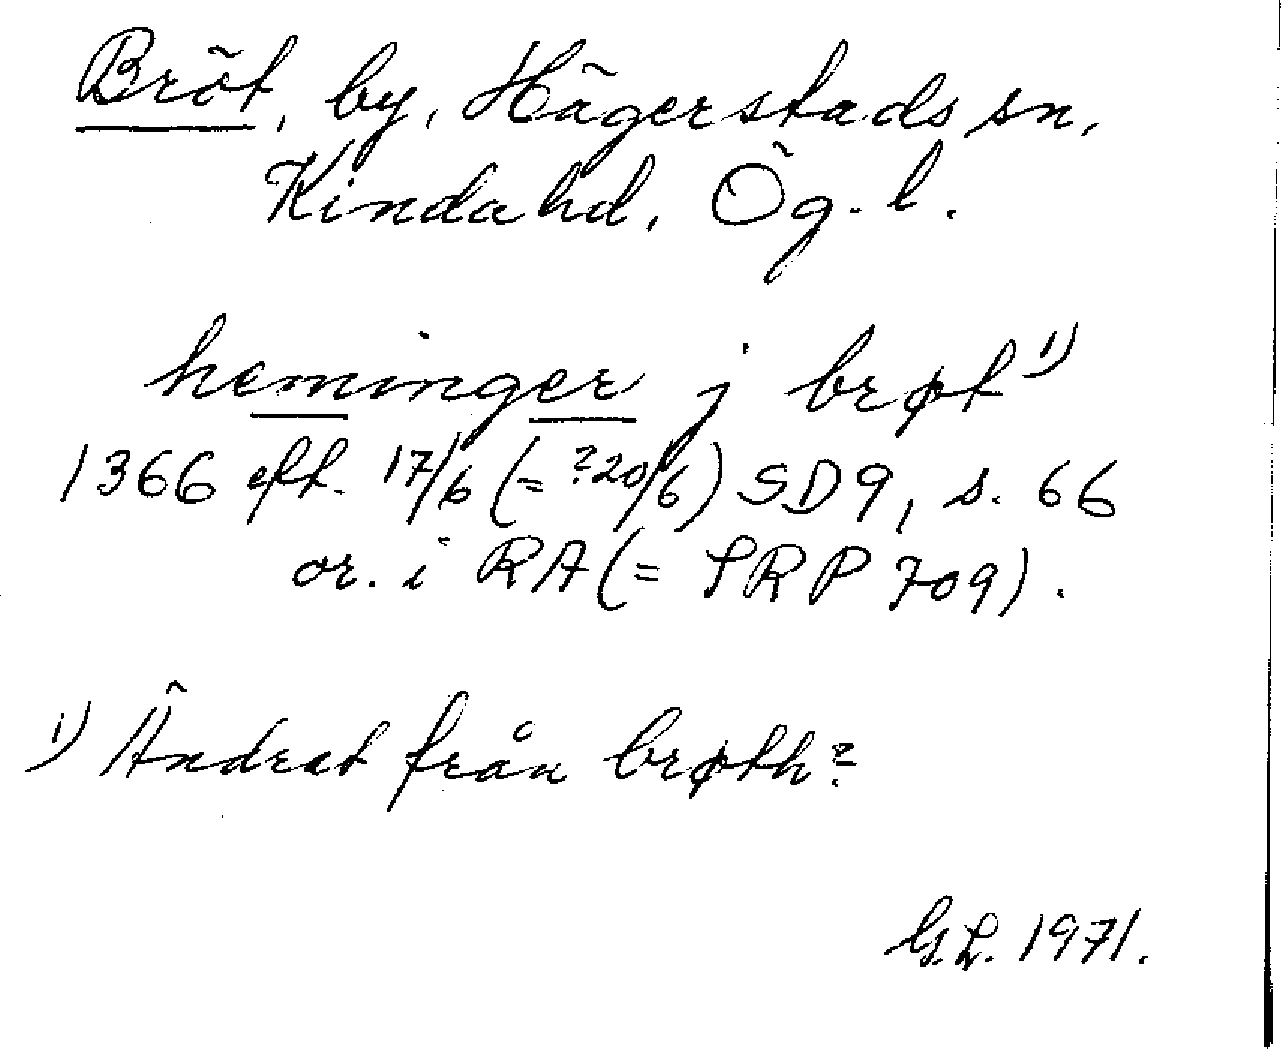 Bröt, by, Hägerstads sn,
Kinda hd, Ög. l.
heminger j brøt 1)
1366 eft. 17/6 (= ?20/6) SD9, s. 66
or. i RA (= SRP 709).
1) Ändrat från brøth?
G.L. 1971.